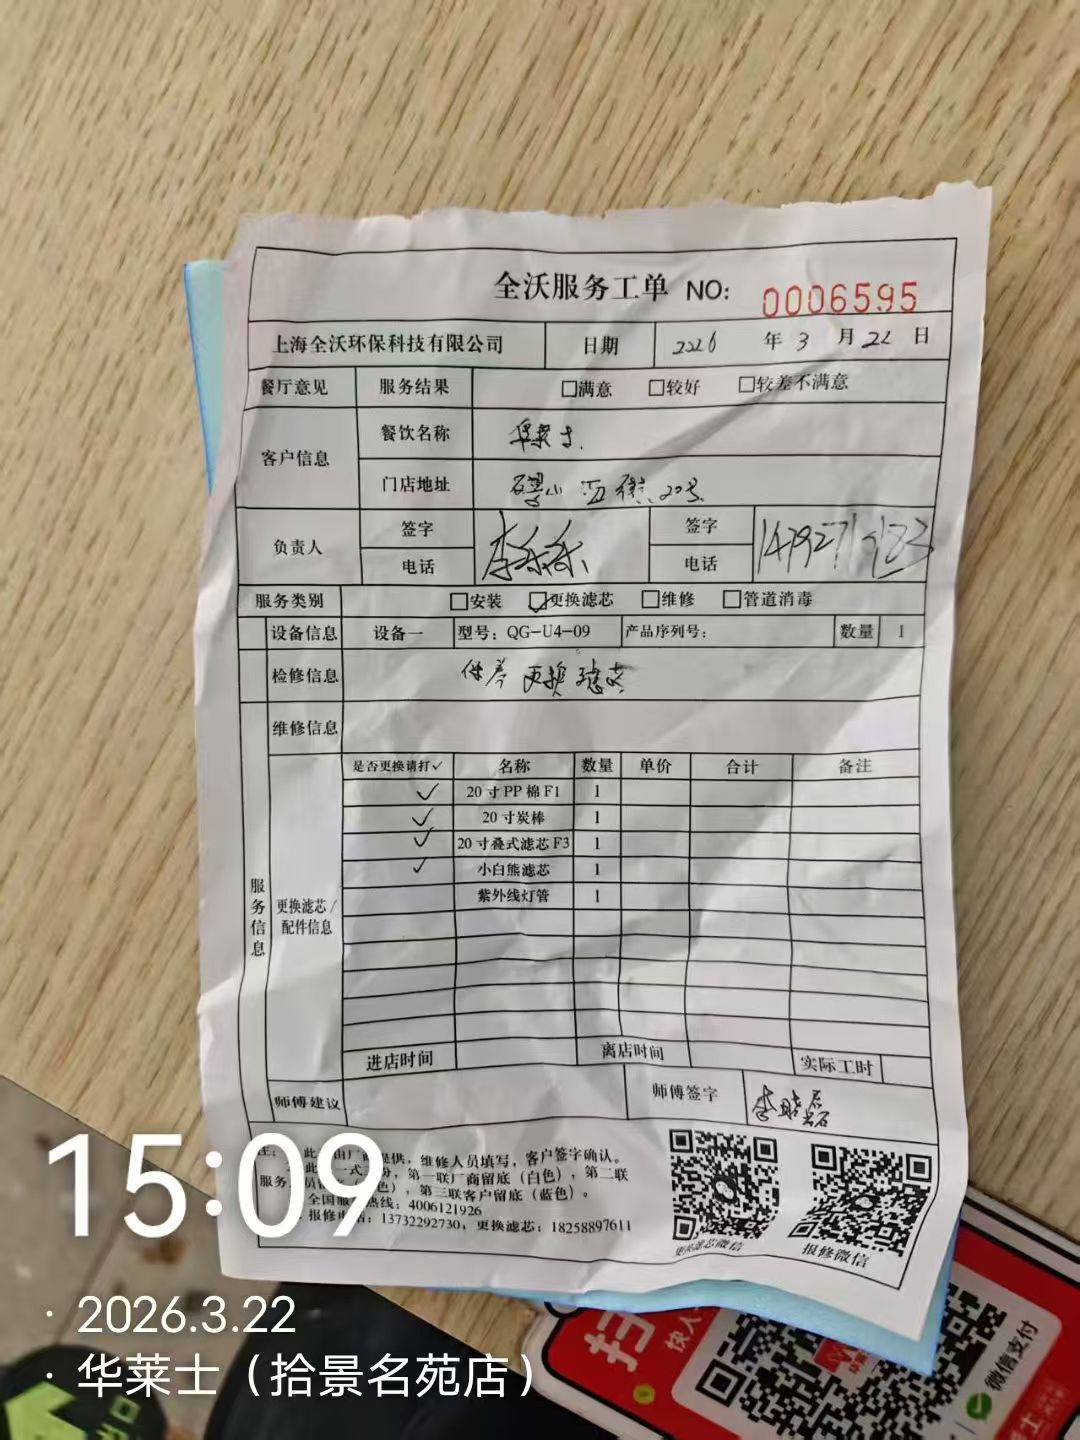 全沃服务工单 NO: 0006595
上海全沃环保科技有限公司 日期 2026 年 3 月 22 日
餐厅意见 服务结果 □满意 □较好 □较差不满意
客户信息 餐饮名称 华莱士.
门店地址 砀山 街 20号
负责人 签字 李 签字
电话 电话
服务类别 □安装 ☑更换滤芯 □维修 □管道消毒
设备信息 设备一 型号: QG-U4-09 产品序列号: 数量 1
检修信息 保养 更换滤芯
维修信息
服务信息
更换滤芯/
配件信息
是否更换请打✓ 名称 数量 单价 合计 备注
✓ 20寸PP棉F1 1
✓ 20寸炭棒 1
✓ 20寸叠式滤芯F3 1
✓ 小白熊滤芯 1
紫外线灯管 1
进店时间 离店时间 实际工时
师傅建议 师傅签字 李晓磊
此 由厂 提供, 维修人员填写, 客户签字确认。
此 一式 份, 第一联厂商留底 (白色), 第二联
服务 员留 色), 第三联客户留底 (蓝色)。
全国服 热线: 4006121926
报修电话: 13732292730, 更换滤芯: 18258897611
更换滤芯微信 报修微信
15:09
· 2026.3.22
· 华莱士（拾景名苑店）
扫
快人
微信支付